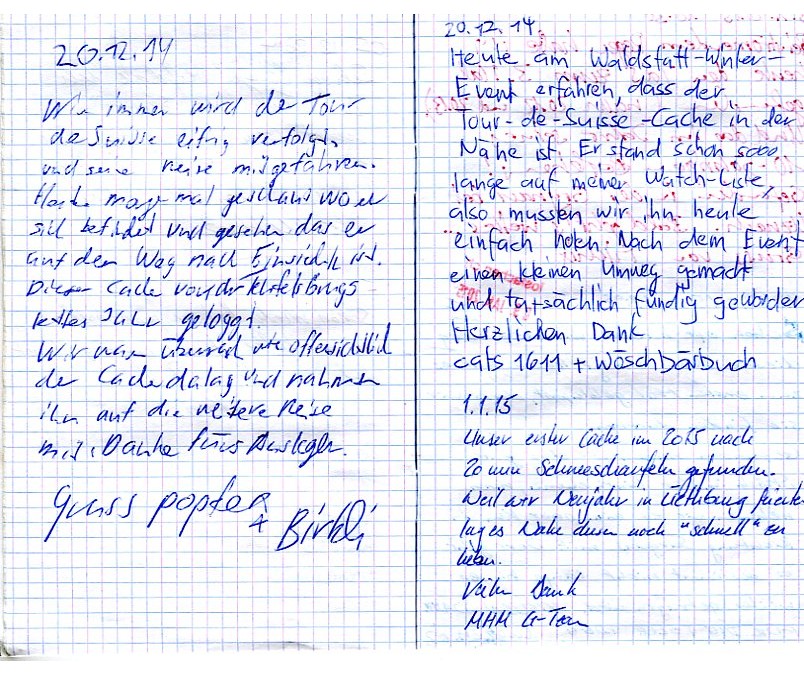 20.12.14
Wie immer wird de Tour
de Suisse eifrig verfolgt,
und seine Reise mitgefahren.
Heute mal geschaut wo er
sich befindet und gesehen das er
auf dem Weg nach Einsiedeln ist.
Dieser Cache von der
letztes Jahr geloggt.
Wir waren überrascht wie offensichtlich
der Cache dalag und nahmen
ihn auf die weitere Reise
mit. Danke fürs Auslegen.
Gruss popfer
+ Birkli
20.12.14
Heute am Waldstatt-Winter-
Event erfahren, dass der
Tour-de-Suisse-Cache in der
Nähe ist. Er stand schon sooo
lange auf meiner Watch-Liste,
also mussten wir ihn heute
einfach holen. Nach dem Event
einen kleinen Umweg gemacht
und tatsächlich fündig geworden
Herzlichen Dank
cats 1611 + Wöschbärbuch
1.1.15
Unser erster Cache im 2015 nach
20 min Schneeschaufeln gefunden.
Weil wir Neujahr in
lag es Nahe diesen noch "schnell" zu
heben.
Vielen Dank
MHM G-Team